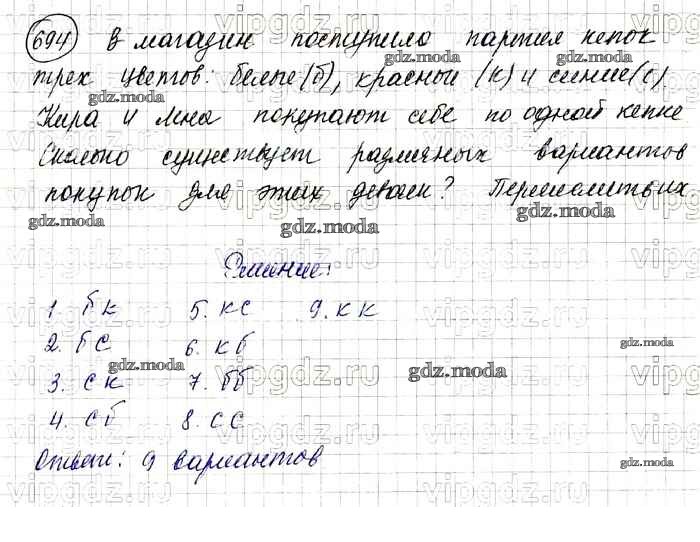 694 В магазин поступило партия кепок
трех цветов: белые (б), красные (к) и синие (с)
Кира и Лена покупают себе по одной кепке
Сколько существует различных вариантов
покупок для этих девочек? Перечислите их.
Решение:
1. бк 5. кс 9. кк
2. бс 6. кб
3. ск 7. бб
4. сб 8. сс
Ответ: 9 вариантов
gdz.moda
vipgdz.ru